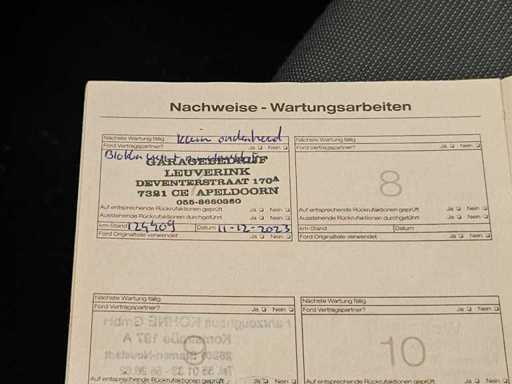 Nachweise - Wartungsarbeiten
Nächste Wartung fällig klein onderhoud
Ford Vertragspartner? Ja Nein
GARAGEBEDRIJF
LEUVERINK
DEVENTERSTRAAT 170A
7321 CE APELDOORN
055-3660360
Auf entsprechende Rückrufaktionen geprüft Ja Nein
Ausstehende Rückrufaktionen durchgeführt Ja Nein
km-Stand 124409 Datum 11-12-2023
Ford Originalteile verwendet Ja Nein
Nächste Wartung fällig
Ford Vertragspartner? Ja Nein
8
Auf entsprechende Rückrufaktionen geprüft Ja Nein
Ausstehende Rückrufaktionen durchgeführt Ja Nein
km-Stand Datum
Ford Originalteile verwendet Ja Nein
Nächste Wartung fällig
Ford Vertragspartner? Ja Nein
9
Auf entsprechende Rückrufaktionen geprüft Ja Nein
Nächste Wartung fällig
Ford Vertragspartner? Ja Nein
10
Auf entsprechende Rückrufaktionen geprüft Ja Nein